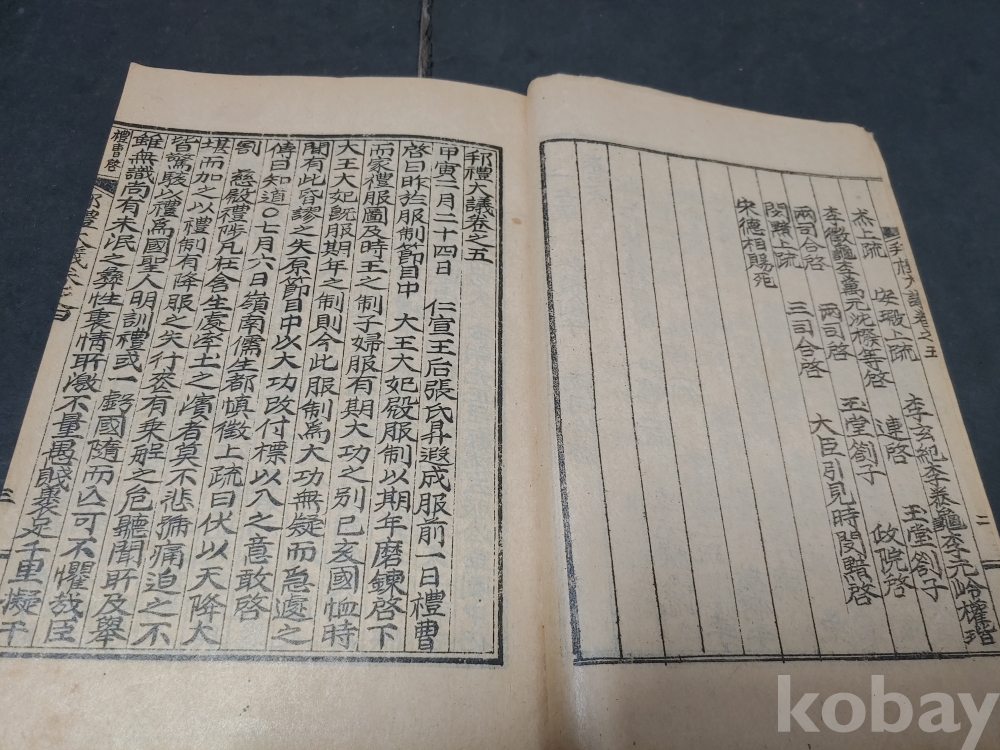 上疏 疏 李玄紀李泰龜李元岭權瑎
等啓 連啓 玉堂劄子
兩司合啓 兩司啓 玉堂劄子 政院啓
閔黯上疏 三司合啓 大臣引見時閔黯啓
宋德相賜死
大議卷之五
二
邦禮大議卷之五
甲寅二月二十四日 仁宣王后張氏昇遐成服前一日禮曹
啓曰昨於服制節目中 大王大妃殿服制以期年磨鍊啓下
而家禮服圖及時王之制子婦服有期大功之別己亥國恤時
大王大妃旣服期年之制則今此服制爲大功無疑而急遽之
間有此謬之失原節目中以大功改付標以入之意敢啓
傳曰知道○七月六日嶺南儒生都愼徵上疏曰伏以天降大
割 慈殿禮陟凡在含生處率土之濱者莫不悲痛迫之不
堪而加之以禮制有降服之失行喪有乘船之危聽聞所及擧
皆驚駭以禮爲國聖人明訓禮或一虧國隨而亡可不懼哉臣
雖無識尚有未泯之彝性衷情所激不量愚賤裹足千里擬干
禮曹啓
三
kobay